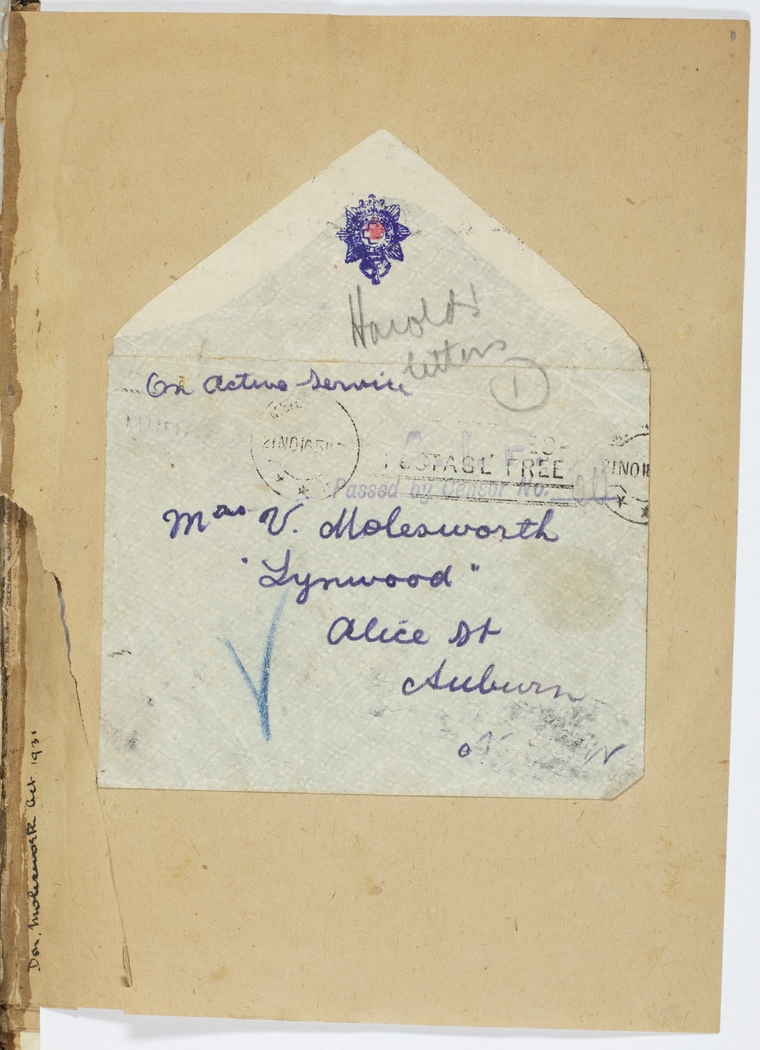 Harolds
letters
1
On Active Service
21NO16
POSTAGE FREE
21NO16
Passed by Censor No.
Mrs V. Molesworth
"Lynwood"
Alice St
Auburn
Don. Molesworth Oct. 1931